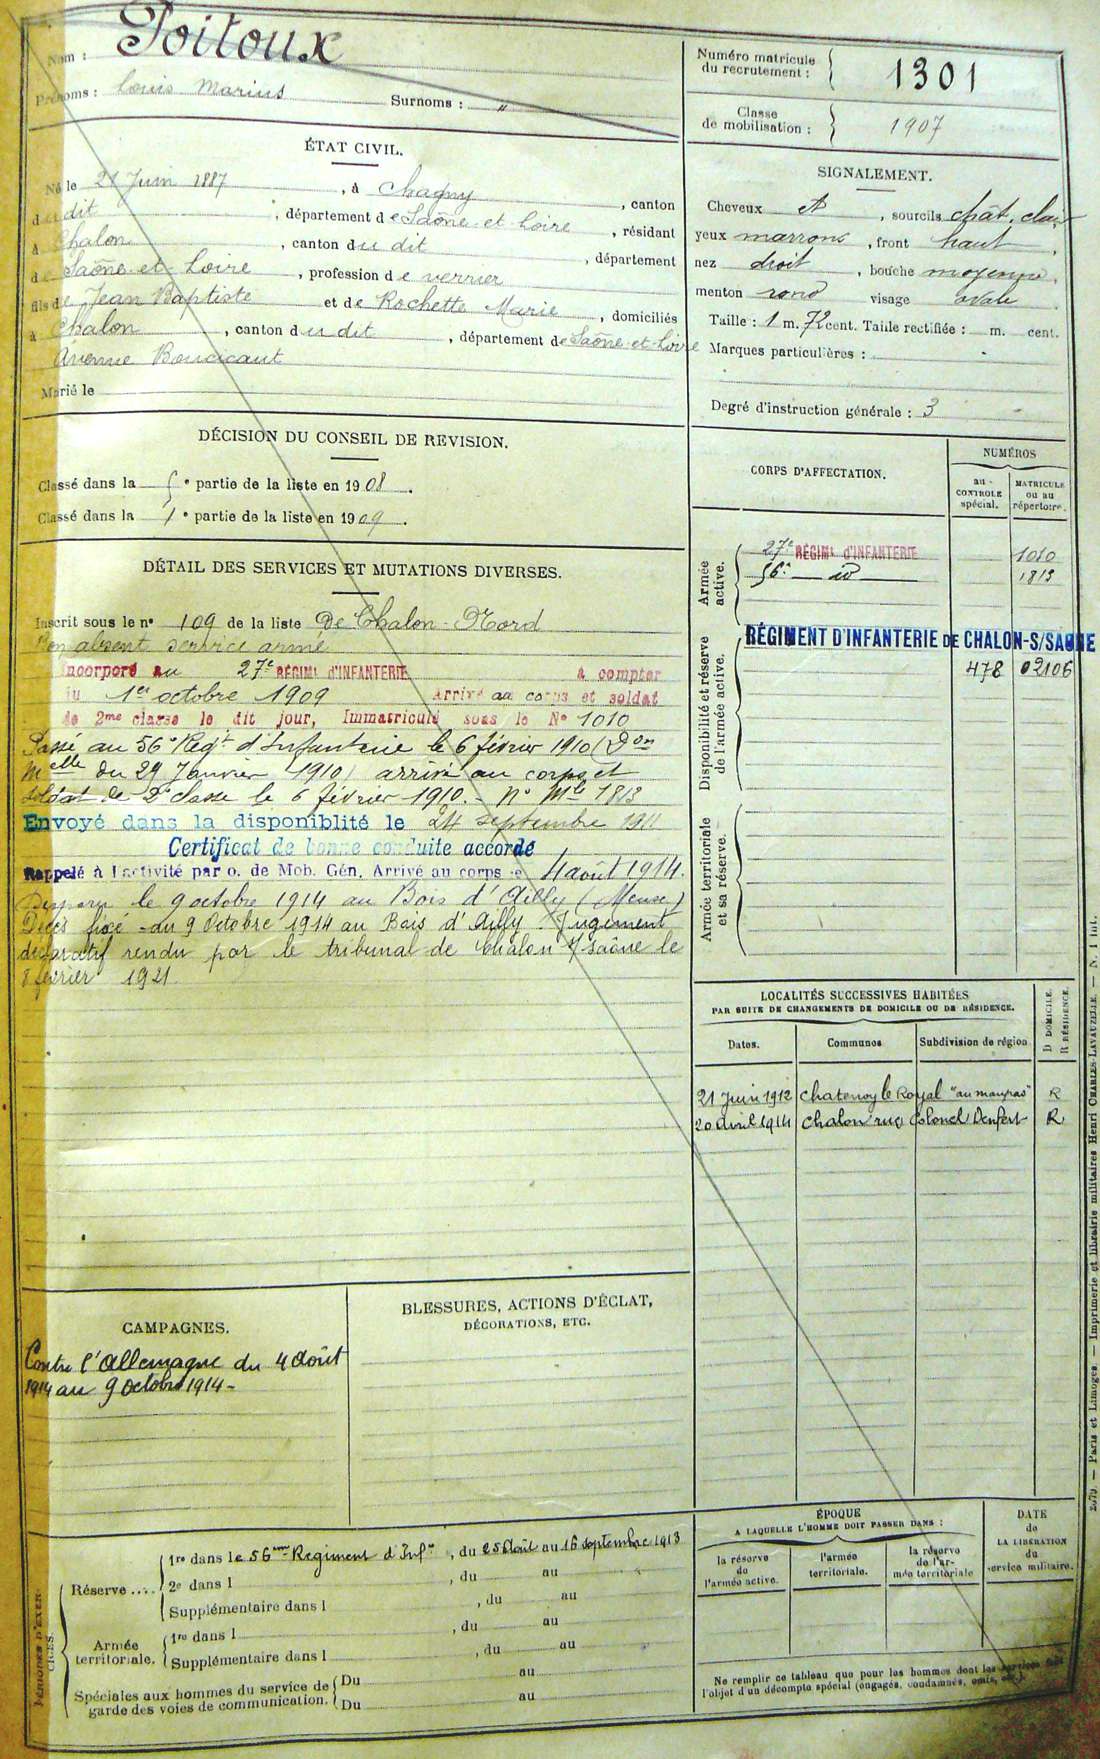 Nom : Poitoux
Prénoms : Louis Marius Surnoms : "
Numéro matricule du recrutement : 1301
Classe de mobilisation : 1907
ÉTAT CIVIL.
Né le 21 Juin 1887, à Chagny, canton
dudit, département de Saône-et-Loire, résidant
à Chalon, canton du dit, département
de Saône-et-Loire, profession de verrier
fils de Jean Baptiste et de Rochette Marie, domiciliés
à Chalon, canton du dit, département de Saône-et-Loire
Avenue Boucicaut
Marié le
SIGNALEMENT.
Cheveux et, sourcils chât. clair
yeux marrons, front haut,
nez droit, bouche moyenne,
menton rond visage ovale
Taille : 1 m. 72 cent. Taille rectifiée : m. cent.
Marques particulières :
Degré d'instruction générale : 3
DÉCISION DU CONSEIL DE REVISION.
Classé dans la 5e partie de la liste en 1908.
Classé dans la 1e partie de la liste en 1909.
DÉTAIL DES SERVICES ET MUTATIONS DIVERSES.
Inscrit sous le no 109 de la liste De Chalon-Nord
Bon absent service armé
Incorporé au 27e RÉGIMt d'INFANTERIE à compter
du 1er octobre 1909 Arrivé au corps et soldat
de 2me classe le dit jour, Immatriculé sous le No 1010
Passé au 56e Regt d'Infanterie le 6 février 1910 (Don
Melle du 29 Janvier 1910) arrivé au corps et
soldat de 2e classe le 6 février 1910. - No Mle 1813
Envoyé dans la disponiblité le 24 septembre 1911
Certificat de bonne conduite accordé
Rappelé à l'activité par o. de Mob. Gén. Arrivé au corps le 4 août 1914.
Disparu le 9 octobre 1914 au Bois d'Ailly (Meuse)
Décès fixé au 9 Octobre 1914 au Bois d'Ailly. Jugement
déclaratif rendu par le tribunal de Chalon s/saône le
8 février 1921.
CORPS D'AFFECTATION.
NUMÉROS
au CONTROLE spécial.
MATRICULE ou au répertoire.
Armée active.
27e RÉGIMt d'INFANTERIE 1010
56e — id — 1813
Disponibilité et réserve de l'armée active.
RÉGIMENT D'INFANTERIE DE CHALON-S/SAONE
478 02106
Armée territoriale et sa réserve.
LOCALITÉS SUCCESSIVES HABITÉES
PAR SUITE DE CHANGEMENTS DE DOMICILE OU DE RÉSIDENCE.
Dates. Communes Subdivision de région D DOMICILE. R RÉSIDENCE.
21 Juin 1912 Chatenoy le Royal "au maupas" R
20 avril 1914 Chalon rue Colonel Denfert R
CAMPAGNES.
Contre l'Allemagne du 4 Août
1914 au 9 Octobre 1914 -
BLESSURES, ACTIONS D'ÉCLAT,
DÉCORATIONS, ETC.
PÉRIODES D'EXERCICES.
Réserve ....
1re dans le 56eme Regiment d'Infie, du 25 Août au 16 septembre 1913
2e dans l , du au
Supplémentaire dans l , du au
Armée territoriale.
1re dans l , du au
Supplémentaire dans l , du au
Spéciales aux hommes du service de garde des voies de communication.
Du au
Du au
ÉPOQUE
A LAQUELLE L'HOMME DOIT PASSER DANS :
la réserve de l'armée active.
l'armée territoriale.
la réserve de l'armée territoriale
DATE de LA LIBÉRATION du service militaire.
Ne remplir ce tableau que pour les hommes dont les services font
l'objet d'un décompte spécial (engagés, condamnés, omis, etc.).
— Paris et Limoges. — Imprimerie et librairie militaires Henri CHARLES-LAVAUZELLE. — N. 1 int.